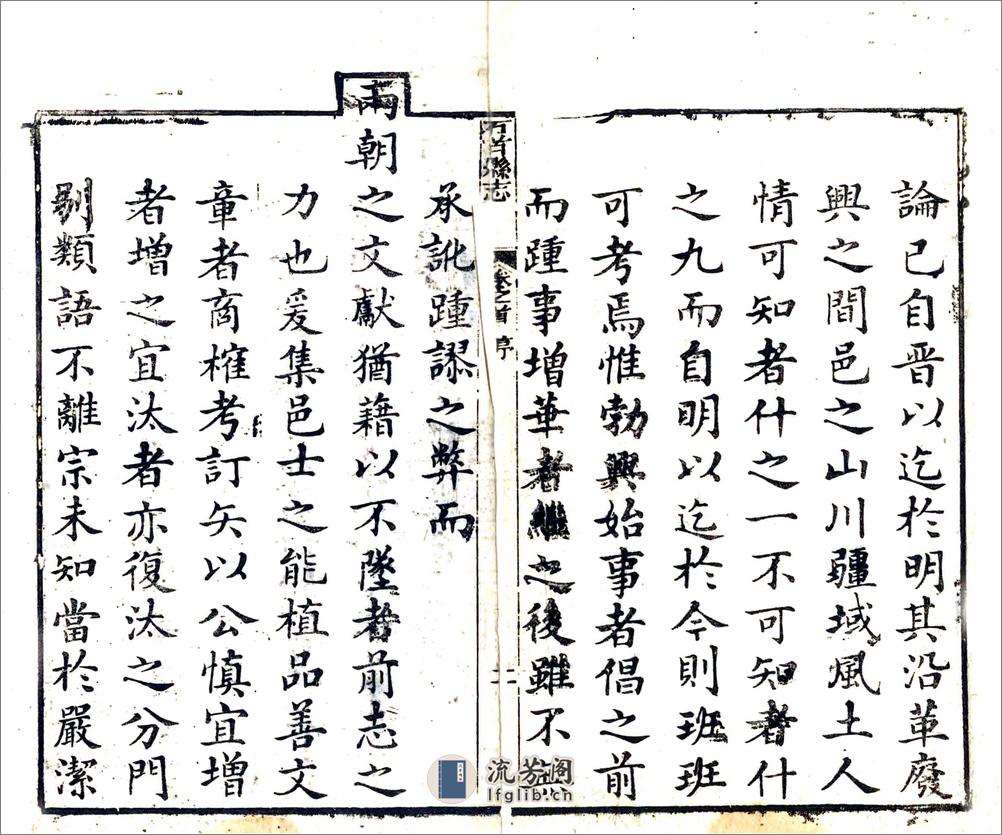 論已自晋以迄於明其沿革廢
興之間邑之山川疆域風土人
情可知者什之一不可知者什
之九而自明以迄於今則班班
可考焉惟勃興始事者倡之前
而踵事增華者繼之後雖不
石首縣志 卷之首 序 二
承訛踵謬之弊而
兩朝之文獻猶藉以不墜者前志之
力也爰集邑士之能植品善文
章者商榷考訂矢以公慎宜增
者增之宜汰者亦復汰之分門
別類語不離宗未知當於嚴潔
流芳阁
lfglib.cn